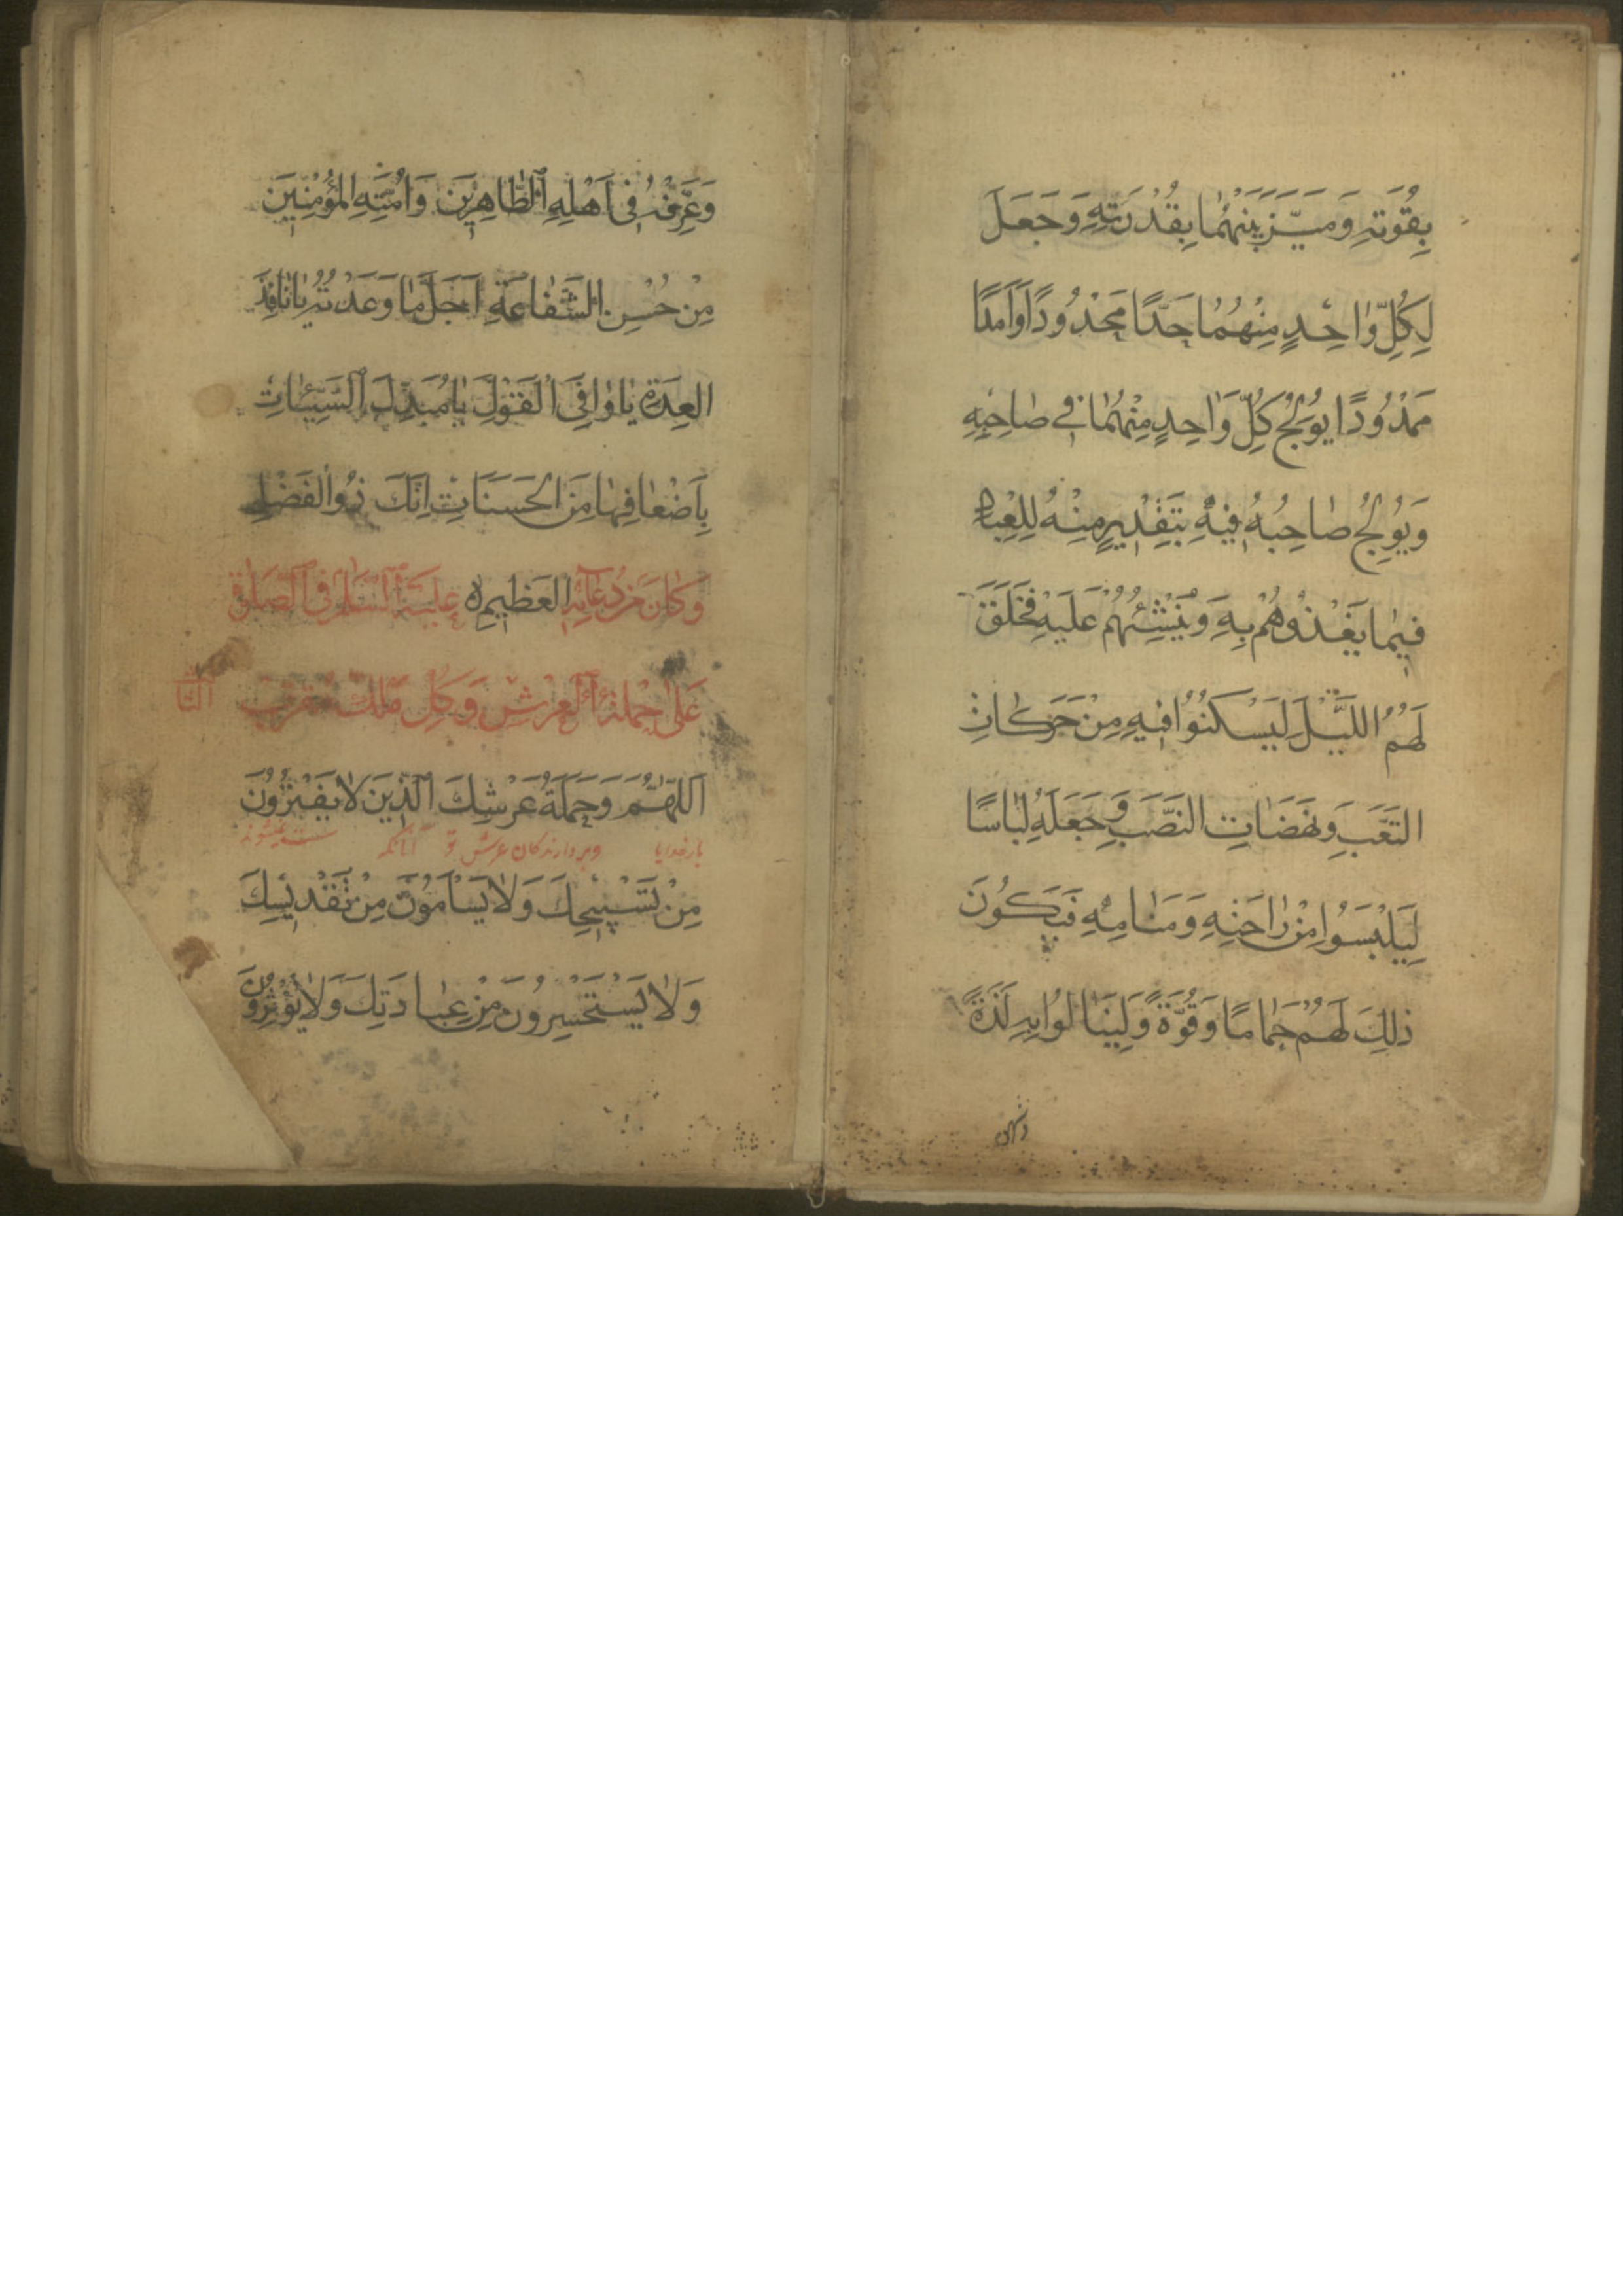 بِقُوَّتِهِ وَمَيَّزَ بَيْنَهُمَا بِقُدْرَتِهِ وَجَعَلَ
لِكُلِّ وَاحِدٍ مِنْهُمَا حَدًّا مَحْدُودًا وَاَمَدًا
مَمْدُودًا يُولِجُ كُلَّ وَاحِدٍ مِنْهُمَا فِي صَاحِبِهِ
وَيُولِجُ صَاحِبَهُ فِيهِ بِتَقْدِيرٍ مِنْهُ لِلْعِبَادِ
فِيمَا يَغْذُوهُمْ بِهِ وَيُنْشِئُهُمْ عَلَيْهِ فَخَلَقَ
لَهُمُ اللَّيْلَ لِيَسْكُنُوا فِيهِ مِنْ حَرَكَاتِ
التَّعَبِ وَنَهَضَاتِ النَّصَبِ وَجَعَلَهُ لِبَاسًا
لِيَلْبَسُوا مِنْ رَاحَتِهِ وَمَنَامِهِ فَيَكُونَ
ذٰلِكَ لَهُمْ جَمَامًا وَقُوَّةً وَلِيَنَالُوا بِهِ لَذَّةً
وَعَرِّفْهُ فِي اَهْلِهِ الطَّاهِرِينَ وَاُمَّتِهِ الْمُؤْمِنِينَ
مِنْ حُسْنِ الشَّفَاعَةِ اَجَلَّ مَا وَعَدْتَهُ يَا نَافِذَ
الْعِدَةِ يَا وَافِيَ الْقَوْلِ يَا مُبَدِّلَ السَّيِّئَاتِ
بِاَضْعَافِهَا مِنَ الْحَسَنَاتِ اِنَّكَ ذُو الْفَضْلِ
الْعَظِيمِ ه وَكَانَ مِنْ دُعَائِهِ عَلَيْهِ السَّلَامُ فِي الصَّلَوةِ
عَلَى حَمَلَةِ الْعَرْشِ وَكُلِّ مَلَكٍ مُقَرَّبٍ
اَللّٰهُمَّ وَحَمَلَةُ عَرْشِكَ الَّذِينَ لَا يَفْتُرُونَ
بارخدایا وبردارندگان عرش تو آنانکه سست نمیشوند
مِنْ تَسْبِيحِكَ وَلَا يَسْاَمُونَ مِنْ تَقْدِيسِكَ
وَلَا يَسْتَحْسِرُونَ مِنْ عِبَادَتِكَ وَلَا يُؤْثِرُونَ